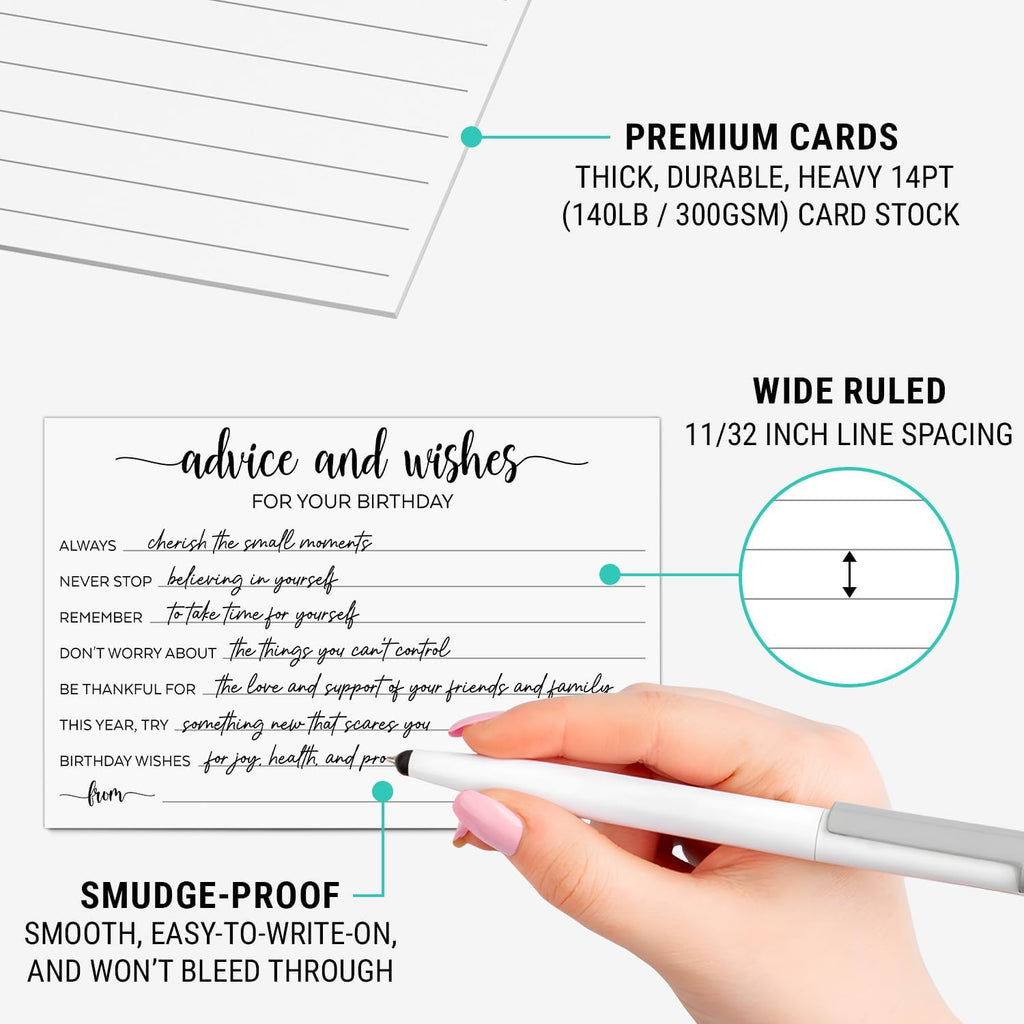 PREMIUM CARDS
THICK, DURABLE, HEAVY 14PT
(140LB / 300GSM) CARD STOCK
WIDE RULED
11/32 INCH LINE SPACING
advice and wishes
FOR YOUR BIRTHDAY
ALWAYS cherish the small moments
NEVER STOP believing in yourself
REMEMBER to take time for yourself
DON'T WORRY ABOUT the things you can't control
BE THANKFUL FOR the love and support of your friends and family
THIS YEAR, TRY something new that scares you
BIRTHDAY WISHES for joy, health, and pro
from
SMUDGE-PROOF
SMOOTH, EASY-TO-WRITE-ON,
AND WON'T BLEED THROUGH